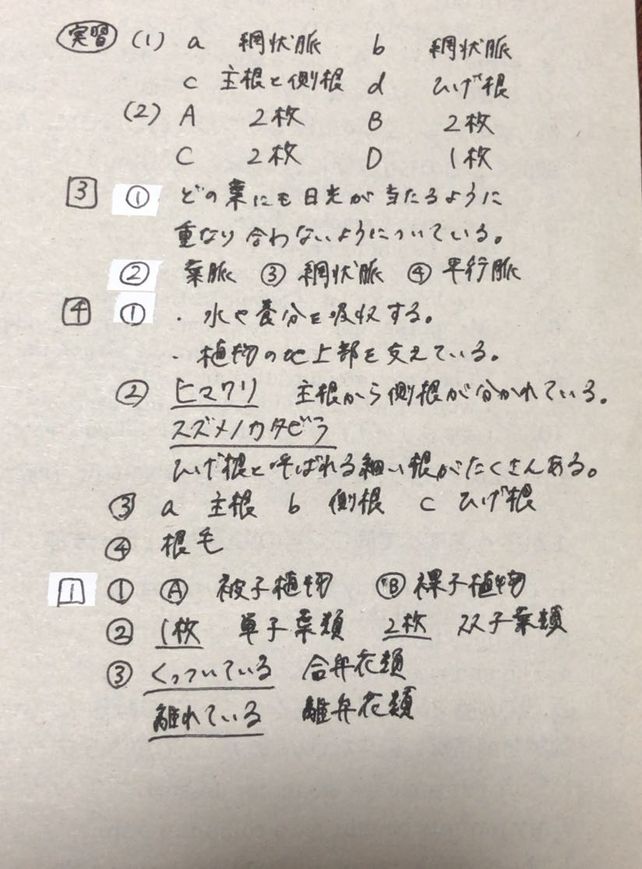 実習 (1) a 網状脈 b 網状脈
c 主根と側根 d ひげ根
(2) A 2枚 B 2枚
C 2枚 D 1枚
3 ① どの葉にも日光が当たるように
重なり合わないようについている。
② 葉脈 ③ 網状脈 ④ 平行脈
4 ① ・水や養分を吸収する。
・植物の地上部を支えている。
② ヒマワリ 主根から側根が分かれている。
スズメノカタビラ
ひげ根と呼ばれる細い根がたくさんある。
③ a 主根 b 側根 c ひげ根
④ 根毛
1 ① Ⓐ 被子植物 Ⓑ 裸子植物
② 1枚 単子葉類 2枚 双子葉類
③ くっついている 合弁花類
離れている 離弁花類